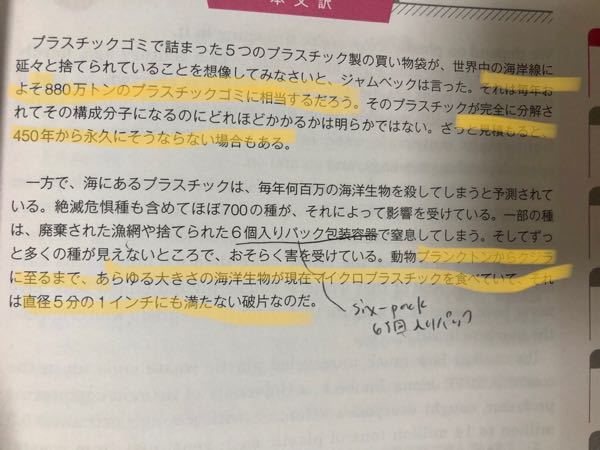 本文訳
プラスチックゴミで詰まった5つのプラスチック製の買い物袋が、世界中の海岸線に
延々と捨てられていることを想像してみなさいと、ジャムベックは言った。それは毎年お
よそ880万トンのプラスチックゴミに相当するだろう。そのプラスチックが完全に分解さ
れてその構成分子になるのにどれほどかかるかは明らかではない。ざっと見積もると、
450年から永久にそうならない場合もある。
一方で、海にあるプラスチックは、毎年何百万の海洋生物を殺してしまうと予測されて
いる。絶滅危惧種も含めてほぼ700の種が、それによって影響を受けている。一部の種
は、廃棄された漁網や捨てられた6個入りパック包装容器で窒息してしまう。そしてずっ
と多くの種が見えないところで、おそらく害を受けている。動物プランクトンからクジラ
に至るまで、あらゆる大きさの海洋生物が現在マイクロプラスチックを食べていて、それ
は直径5分の1インチにも満たない破片なのだ。
six-pack
6個入りパック